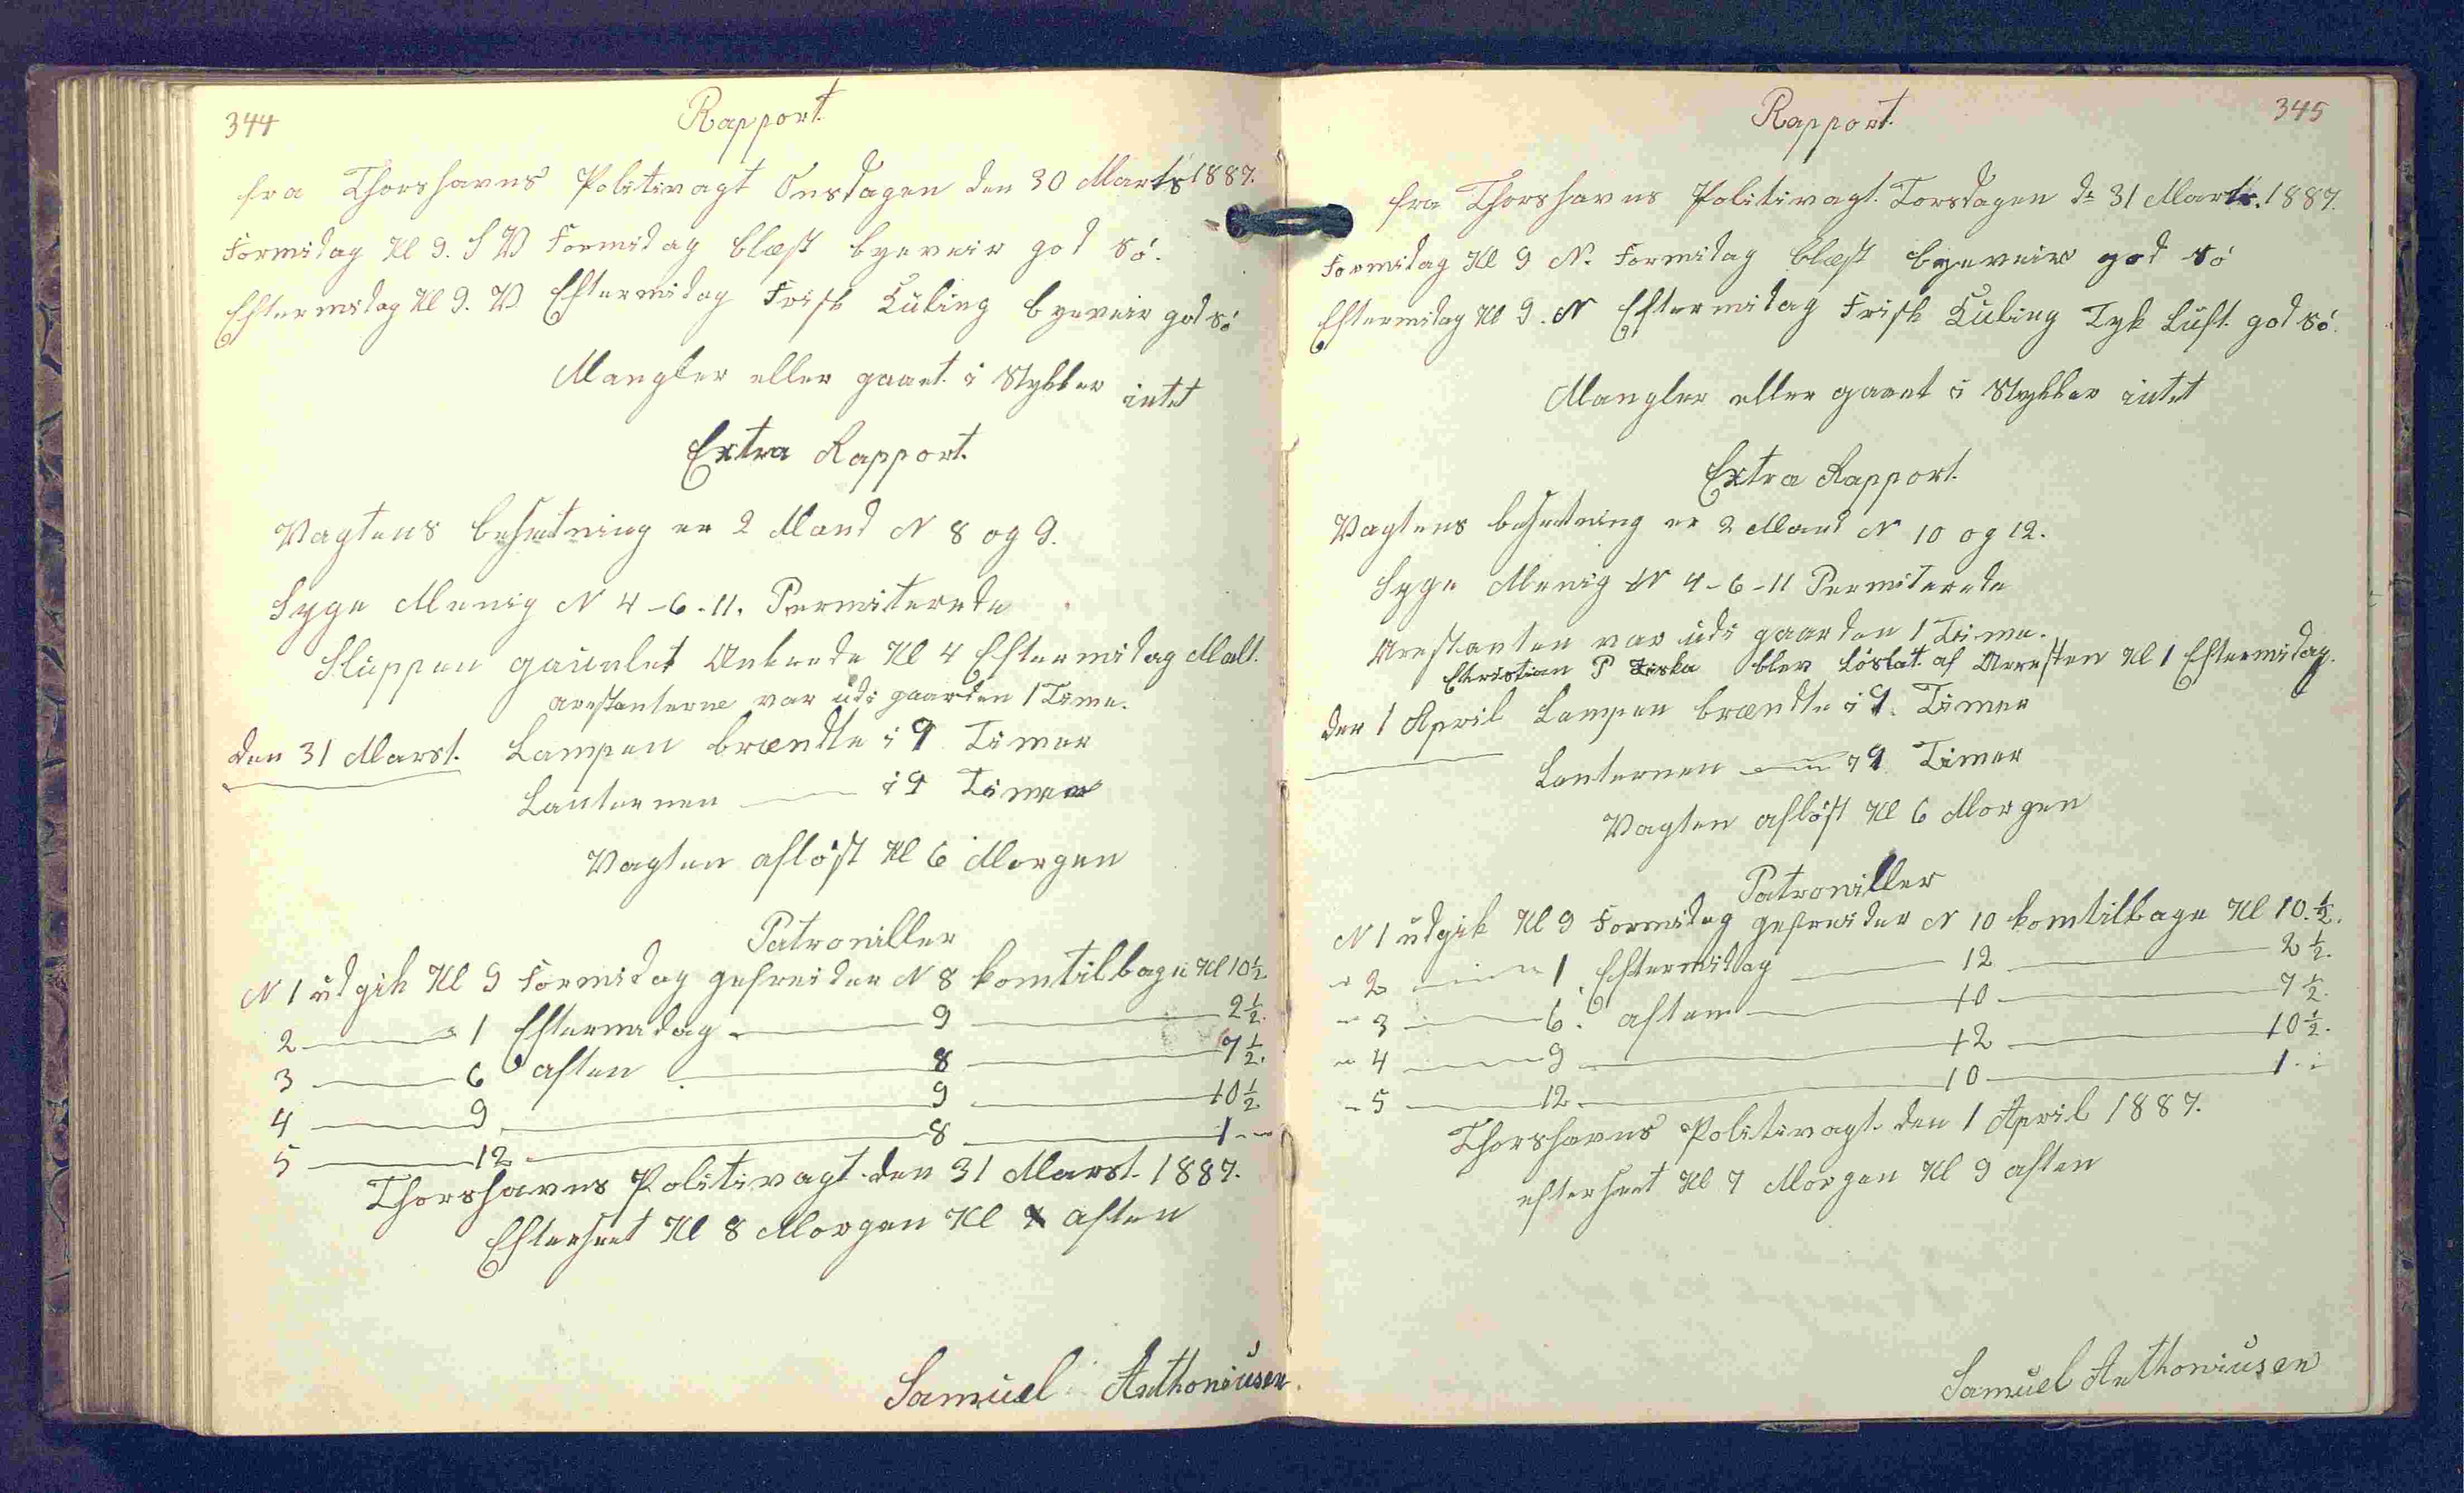 344
Rapport.
fra Thorshavns Politivagt Onsdagen den 30 Marts 1887.
Formidag Kl 9. S V Formidag blæst byeveir god sö.
Eftermidag Kl 9. V Eftermidag Frisk Kuling byeveir god sö
Mangler eller gaaet i Stykker intet
Extra Rapport.
Vagtens besætning er 2 Mand N 8 og 9.
Syge Menig N 4-6-11. Permiterede
Sluppen Ankrede Kl 4 Eftermidag Malt.
arestanterne var udi gaarden 1 Time.
den 31 Marst. Lampen brændte i 9 Timer
Lanternen — i 9 Timer
Vagten aflöst Kl 6 Morgen
Patroniller
N 1 udgik Kl 9 Formidag gefreider N 8 komtilbage Kl 10½.
2 — 1 Eftermidag — 9 — 2½.
3 — 6 aften — 8 — 7½.
4 — 9 — 9 — 10½
5 — 12 — 8 — 1 -
Thorshavns Politivagt den 31 Marst. 1887.
Efterseet Kl 8 Morgen Kl aften
Samuel Anthoniusen.
345
Rapport.
fra Thorshavns Politivagt. Torsdagen d= 31 Marts. 1887.
Formidag Kl 9 N. Formidag blæst byeveir god sö
Eftermidag Kl 9. N Eftermidag Frisk Kuling Tyk Luft. god sö
Mangler eller gaaet i Stykker intet
Extra Rapport.
Vagtens besætning er 2 Mand N 10 og 12.
Syge Menig N 4-6-11 Permiterede
Arestanten var udi gaarden 1 Time.
Christian P blev löslat. af Arresten Kl 1 Eftermidag.
den 1 April Lampen brændte i 9. Timer
Lanternen — 9 Timer
Vagten aflöst Kl 6 Morgen
Patroniller
N 1 udgik Kl 9 Formidag gefreider N 10 komtilbage Kl 10.½.
- 2 — 1 Eftermidag — 12 — 2½.
- 3 — 6. aften — 10 — 7½.
- 4 — 9 — 12 — 10½.
- 5 — 12 — 10 — 1 -
Thorshavns Politivagt. den 1 April 1887.
efterseet Kl 7 Morgen Kl 9 aften
Samuel Anthoniusen